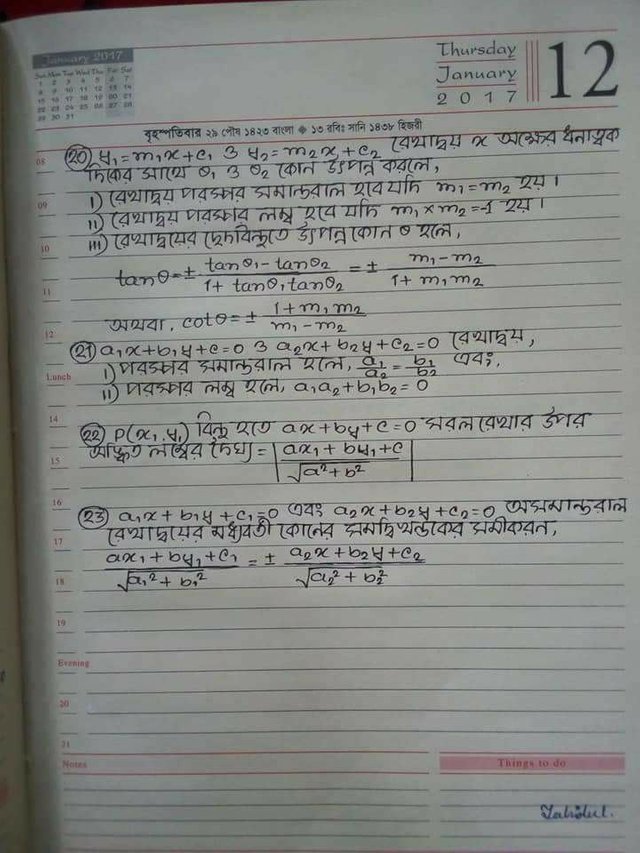 January 2017
Sun Mon Tue Wed Thu Fri Sat
1 2 3 4 5 6 7
8 9 10 11 12 13 14
15 16 17 18 19 20 21
22 23 24 25 26 27 28
29 30 31
Thursday
January
2 0 1 7
12
বৃহস্পতিবার ২৯ পৌষ ১৪২৩ বাংলা ◆ ১৩ রবিঃ সানি ১৪৩৮ হিজরী
08
(20) y₁=m₁x+c₁ ও y₂=m₂x+c₂ রেখাদ্বয় x অক্ষের ধনাত্মক
দিকের সাথে θ₁ ও θ₂ কোন উৎপন্ন করলে,
09
i) রেখাদ্বয় পরস্পর সমান্তরাল হবে যদি m₁=m₂ হয়।
ii) রেখাদ্বয় পরস্পর লম্ব হবে যদি m₁×m₂=-1 হয়।
10
iii) রেখাদ্বয়ের ছেদবিন্দুতে উৎপন্ন কোন θ হলে,
11
tanθ=± (tanθ₁-tanθ₂)/(1+tanθ₁tanθ₂) = ± (m₁-m₂)/(1+m₁m₂)
12
অথবা, cotθ=± (1+m₁m₂)/(m₁-m₂)
(21) a₁x+b₁y+c=0 ও a₂x+b₂y+c₂=0 রেখাদ্বয়,
Lunch
i) পরস্পর সমান্তরাল হলে, a₁/a₂ = b₁/b₂ এবং,
ii) পরস্পর লম্ব হলে, a₁a₂+b₁b₂=0
14
(22) P(x₁,y₁) বিন্দু হতে ax+by+c=0 সরলরেখার উপর
15
অঙ্কিত লম্বের দৈর্ঘ্য = |(ax₁+by₁+c)/√(a²+b²)|
16
(23) a₁x+b₁y+c₁=0 এবং a₂x+b₂y+c₂=0 অসমান্তরাল
17
রেখাদ্বয়ের মধ্যবর্তী কোনের সমদ্বিখন্ডকের সমীকরন,
18
(ax₁+by₁+c₁)/√(a₁²+b₁²) = ± (a₂x+b₂y+c₂)/√(a₂²+b₂²)
19
Evening
20
21
Notes
Things to do